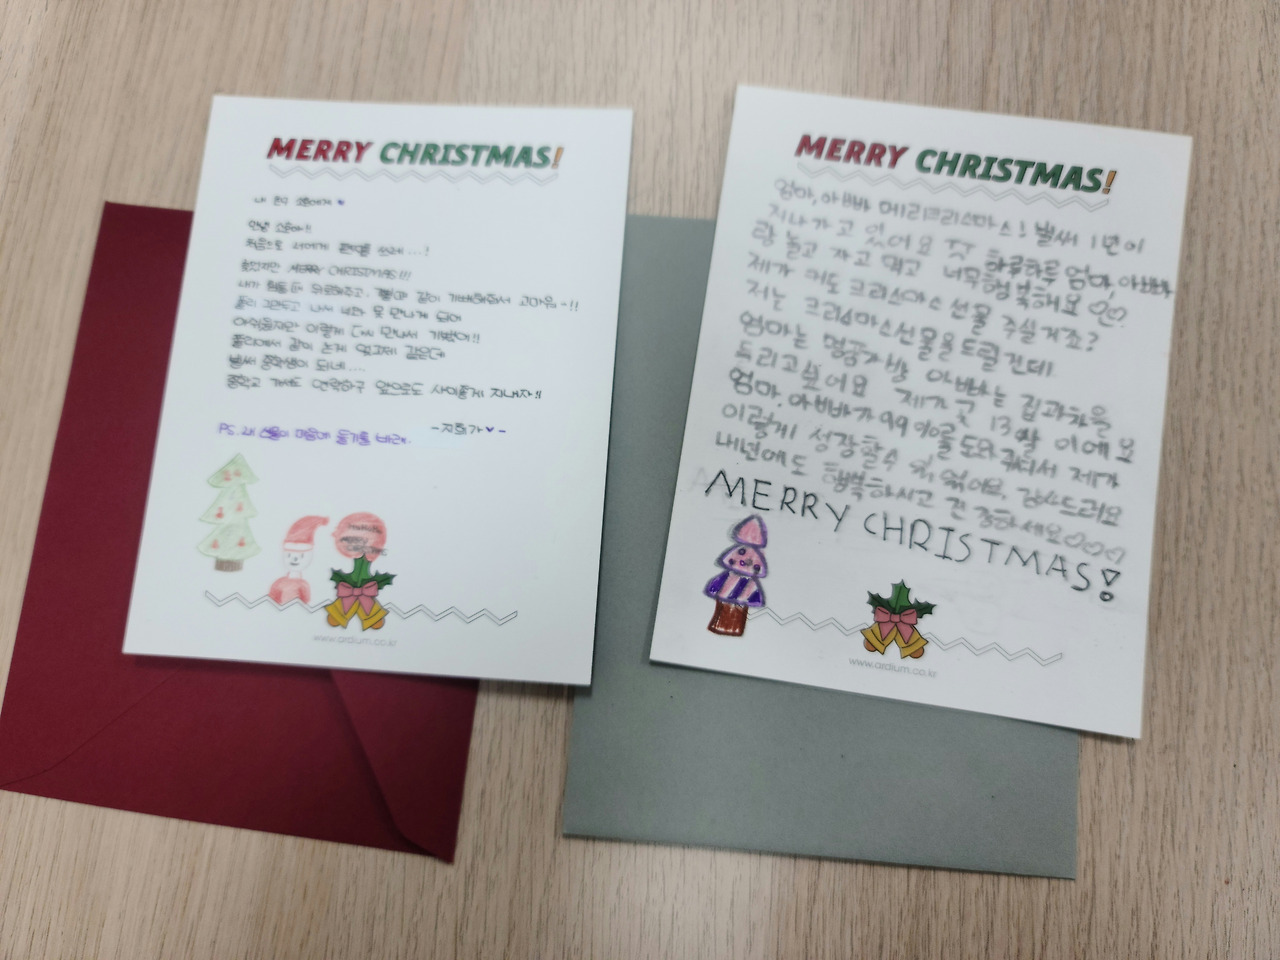 MERRY CHRISTMAS!
내 친구
안녕 !!
처음으로 너에게 편지를 쓰네...!
늦었지만 MERRY CHRISTMAS!!!
내가 힘들때 위로해주고, 같이 기뻐해줘서 고마워~!!
나서 너와 못 만나게 되어
아쉬웠지만 이렇게 다시 만나서 기뻤어!!
같이 논게 엊그제 같은데
벌써 중학생이 되네....
중학교 가서도 연락하구 앞으로도 사이좋게 지내자!!
PS. 내 선물이 마음에 들기를 바래.
MERRY CHRISTMAS
www.ardium.co.kr
MERRY CHRISTMAS!
엄마, 아빠 메리크리스마스! 벌써 1년이
지나가고 있어요 전 하루하루 엄마, 아빠
랑 놀고 자고 먹고 너무 행복해요
제가 커도 크리스마스 선물 주실거죠?
저는 크리스마스선물을 드릴건데
엄마는 명품가방 아빠는 집과차을
드리고싶어요 제가 곧 13살 이에요
엄마, 아빠가 99%를 도와주셔서 제가
이렇게 성장할수 있었어요. 감사드려요
내년에도 행복하시고 건강하세요♡♡♡
MERRY CHRISTMAS!
www.ardium.co.kr